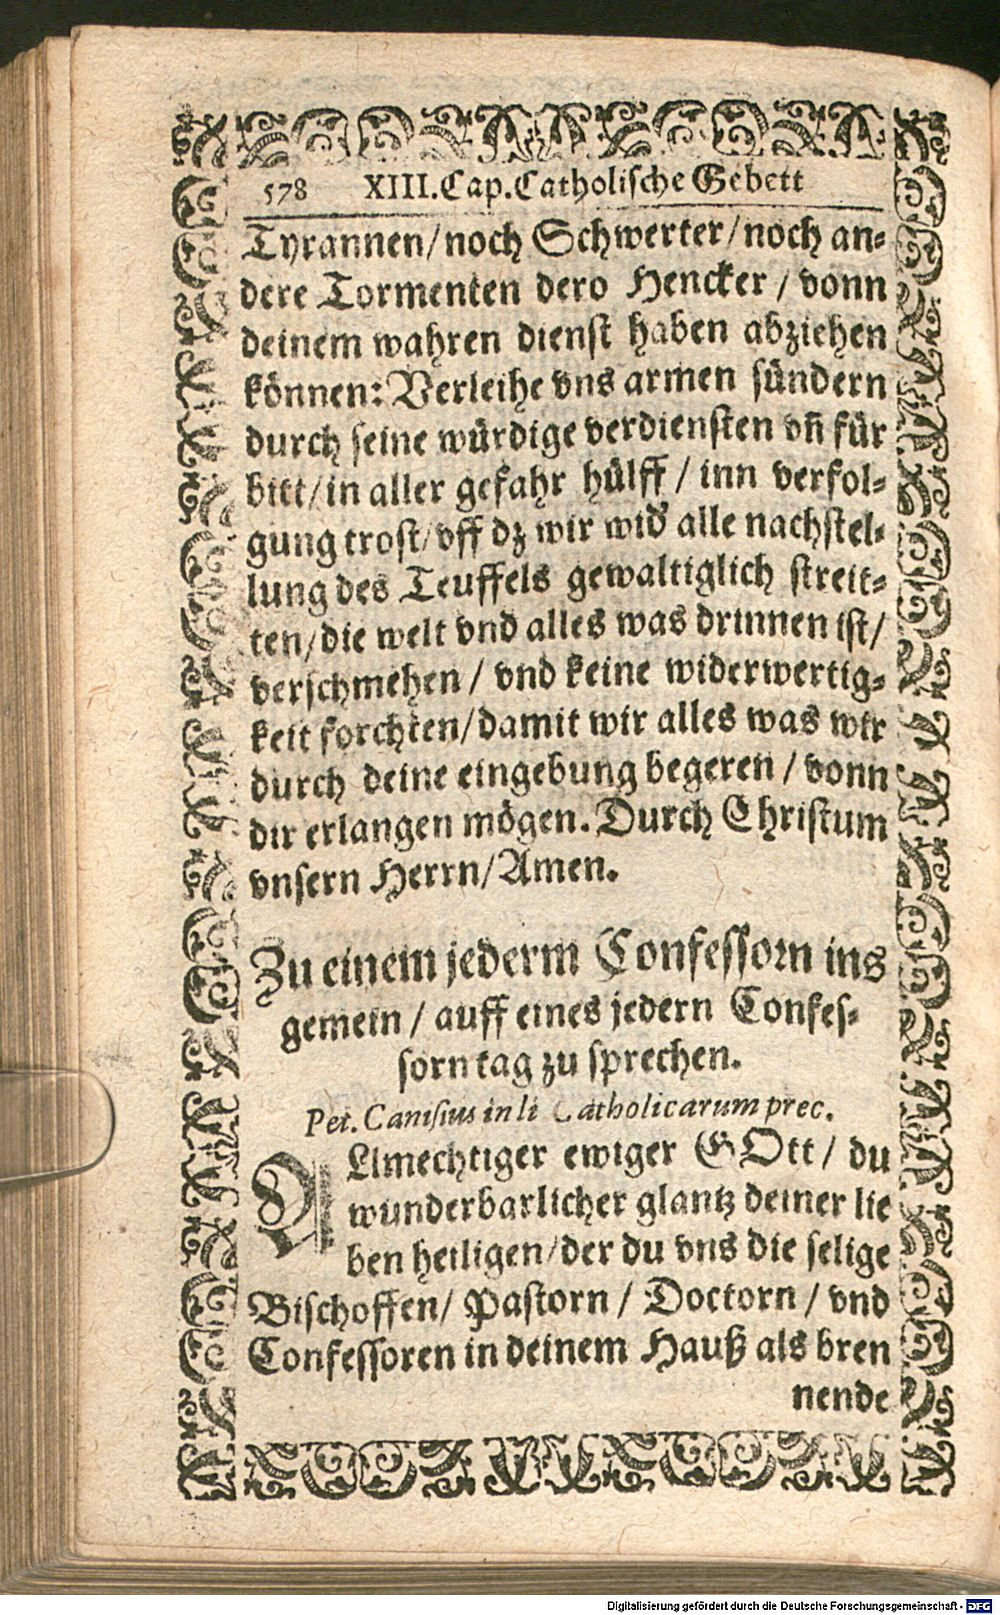 578 XIII.Cap.Catholische Gebett
Tyrannen/noch Schwerter/noch an⸗
dere Tormenten dero Hencker / vonn
deinem wahren dienst haben abziehen
können: Verleihe vns armen sündern
durch seine würdige verdiensten vñ für
bitt/in aller gefahr hülff / inn verfol⸗
gung trost/vff dz wir wid' alle nachstel⸗
lung des Teuffels gewaltiglich streit⸗
ten/die welt vnd alles was drinnen ist/
verschmehen / vnd keine widerwertig⸗
keit forchten/damit wir alles was wir
durch deine eingebung begeren / vonn
dir erlangen mögen. Durch Christum
vnsern Herrn/Amen.
Zu einem jederm Confessorn ins
gemein / auff eines jedern Confes⸗
sorn tag zu sprechen.
Pet. Canisius in li Catholicarum prec.
ALlmechtiger ewiger GOtt / du
wunderbarlicher glantz deiner lie
ben heiligen/der du vns die selige
Bischoffen/ Pastorn / Doctorn / vnd
Confessoren in deinem Hauß als bren
nende
Digitalisierung gefördert durch die Deutsche Forschungsgemeinschaft - DFG